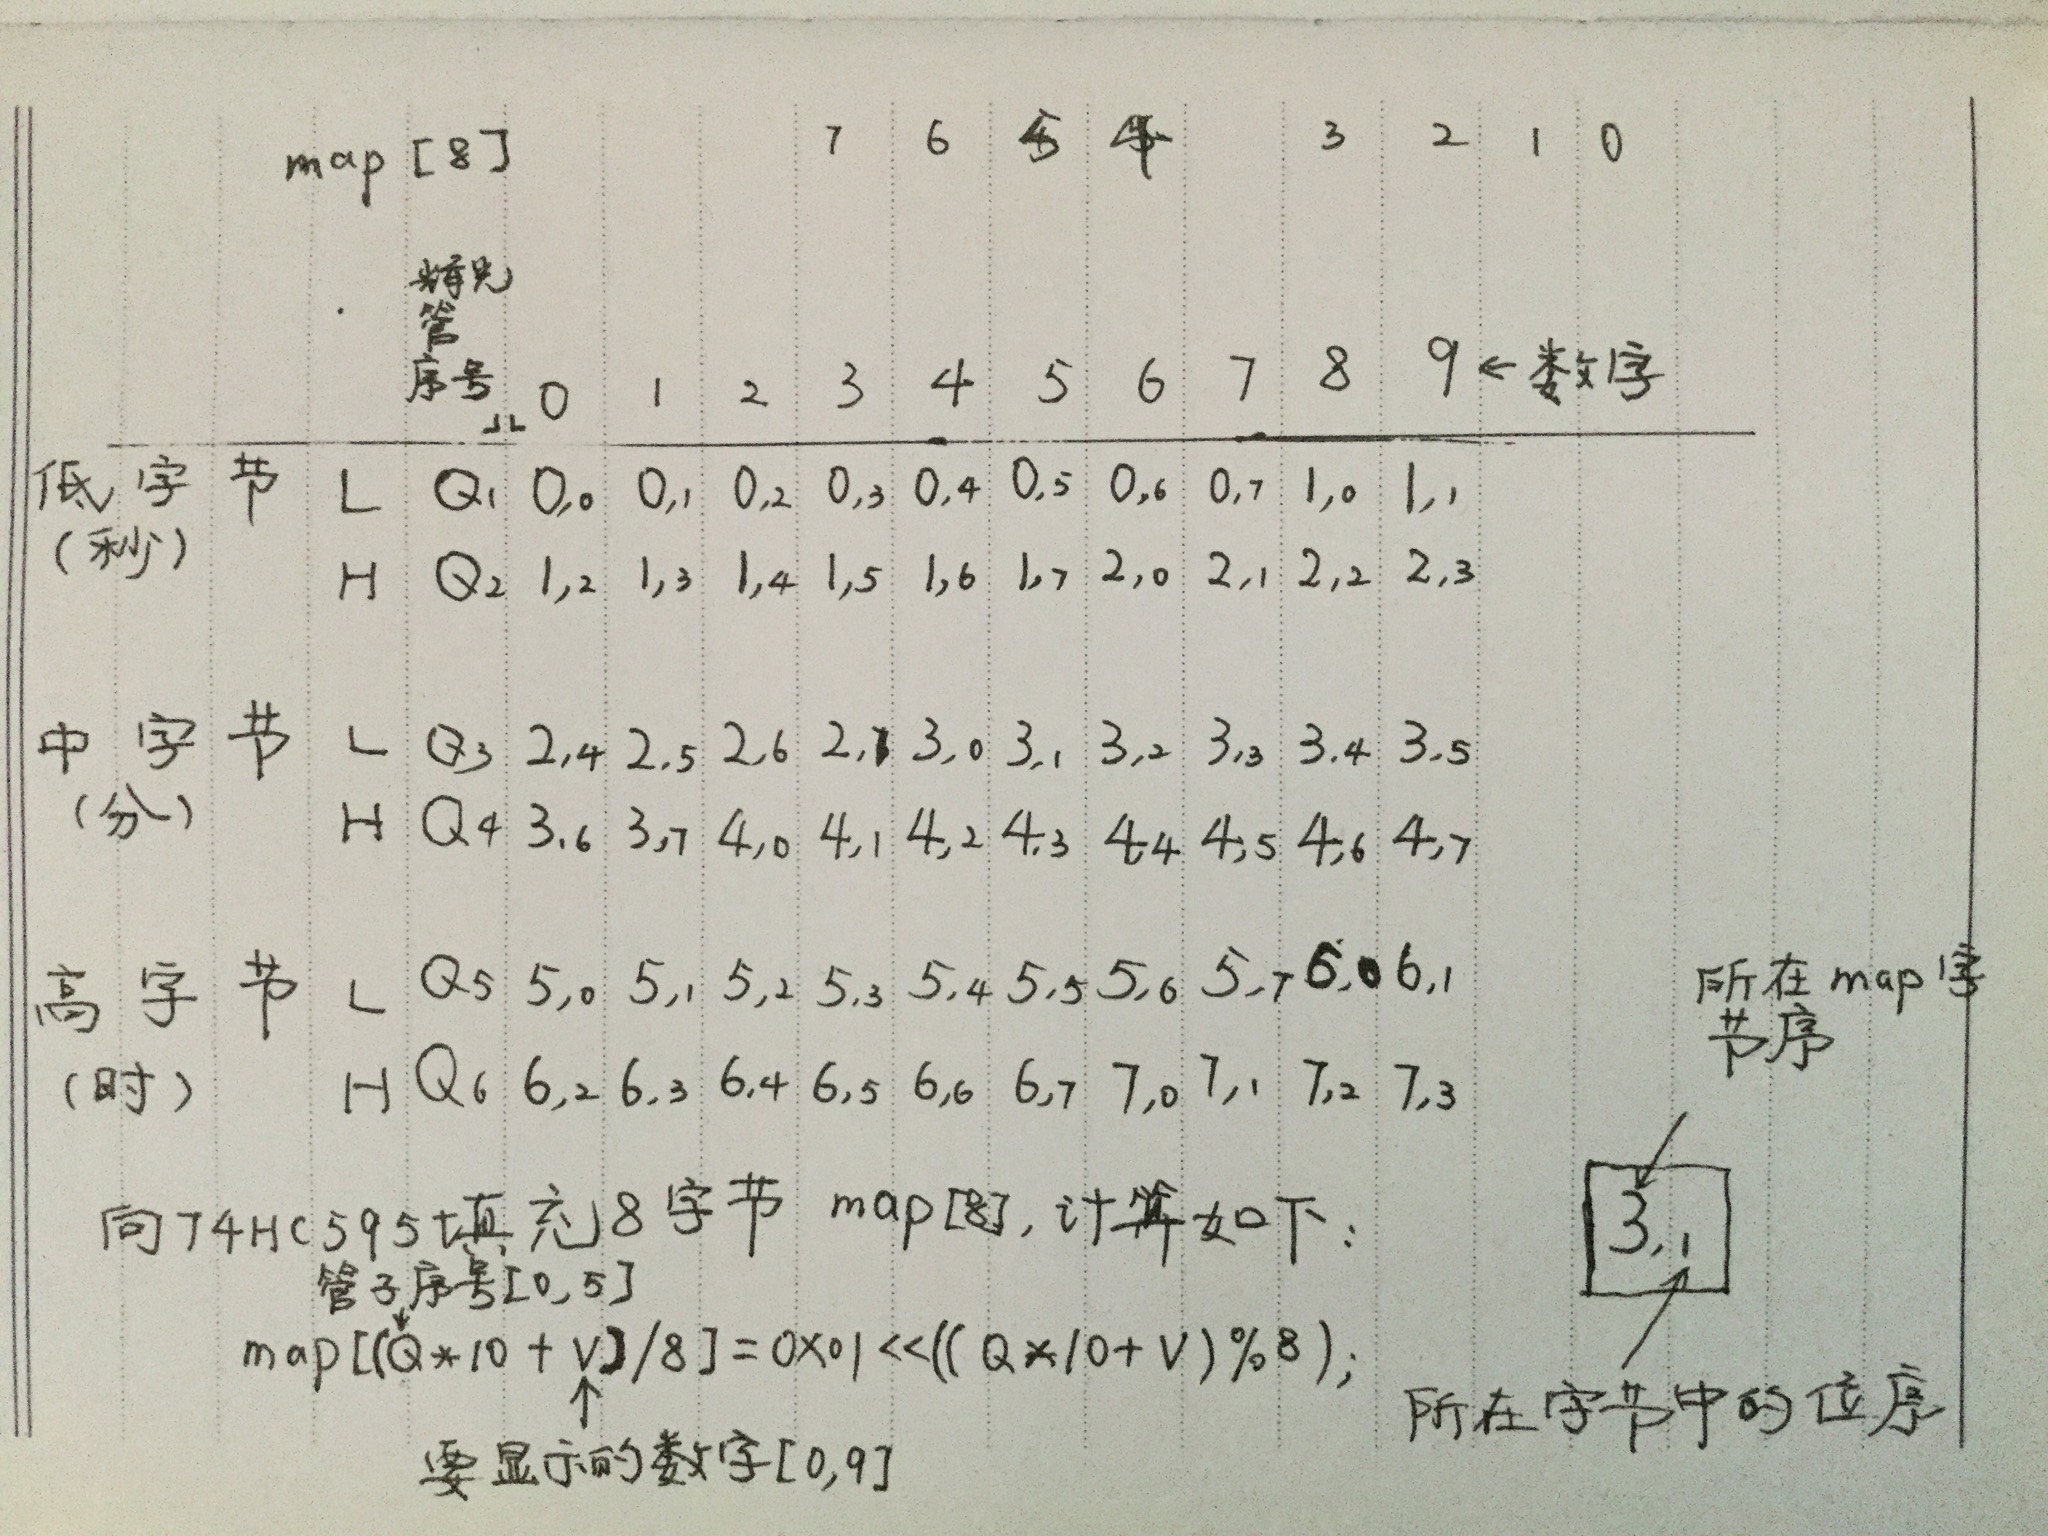 map [8] 7 6 5 4 3 2 1 0
辉光
管
序号 0 1 2 3 4 5 6 7 8 9 ← 数字
低字节 L Q1 0,0 0,1 0,2 0,3 0,4 0,5 0,6 0,7 1,0 1,1
(秒) H Q2 1,2 1,3 1,4 1,5 1,6 1,7 2,0 2,1 2,2 2,3
中字节 L Q3 2,4 2,5 2,6 2,7 3,0 3,1 3,2 3,3 3,4 3,5
(分) H Q4 3,6 3,7 4,0 4,1 4,2 4,3 4,4 4,5 4,6 4,7
高字节 L Q5 5,0 5,1 5,2 5,3 5,4 5,5 5,6 5,7 6,0 6,1
(时) H Q6 6,2 6,3 6,4 6,5 6,6 6,7 7,0 7,1 7,2 7,3
所在map字
节序
3,1
所在字节中的位序
向74HC595填充8字节 map[8],计算如下:
管子序号[0,5]
map[(Q*10+V)/8]=0x01<<((Q*10+V)%8);
要显示的数字[0,9]